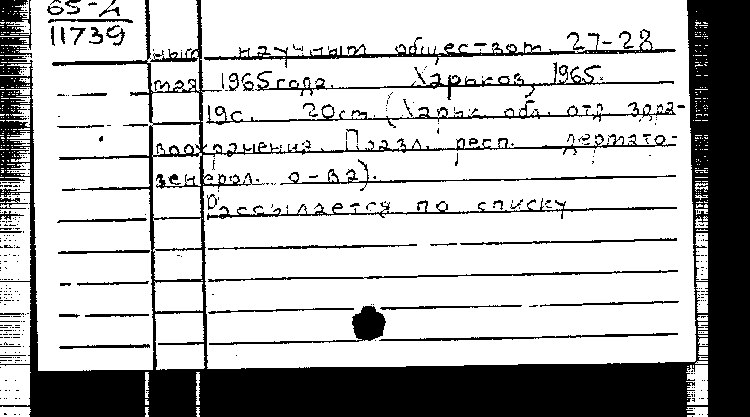 65-4
11739
ным научным обществом. 27-28
мая 1965 года. Харьков, 1965.
19с. 20см. (Харьк. обл. отд. здра-
воохранения. Правл. респ. дермато-
венерол. о-ва).
Рассылается по списку